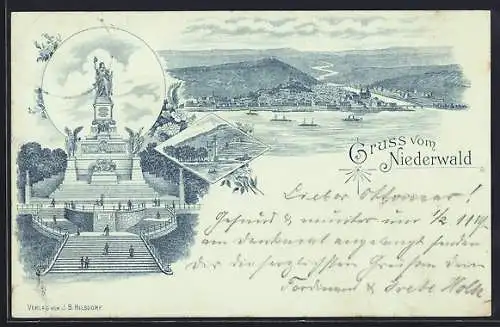 Gruss vom
Niederwald
Lieber Ottomar!
Gesund & munter um 1/2 11 Uhr
am Denkmal angelangt senden
Dir die herzlichsten Grüsse Dein
Ferdinand & Grete
VERLAG VON J. B. HILSDORF